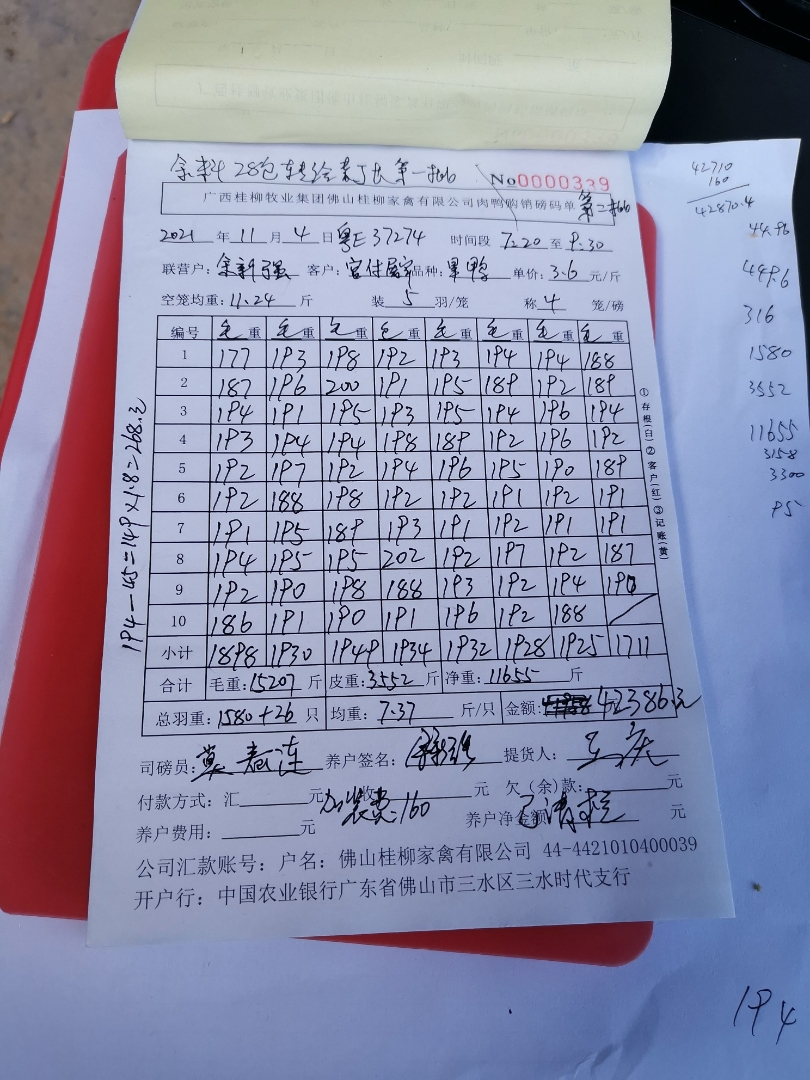 余料28包转给袁丁长第一批
No 0000339
广西桂柳牧业集团佛山桂柳家禽有限公司肉鸭购销磅码单 第二批
2021 年 11 月 4 日 粤E 37274 时间段 7:20 至 9:30
联营户: 余新强 客户: 宫付 品种: 单鸭 单价: 3.6 元/斤
空笼均重: 11.24 斤 装 5 羽/笼 称 4 笼/磅
编号 毛重 毛重 毛重 毛重 毛重 毛重 毛重 毛重
1 177 193 198 192 193 194 194 188
2 187 196 200 191 195 189 192 189
3 194 191 195 193 195 194 196 194
4 193 194 194 198 189 192 196 192
5 192 197 192 194 196 195 190 189
6 192 188 198 192 192 191 192 191
7 191 195 189 193 191 192 191 191
8 194 195 195 202 192 197 192 187
9 192 190 198 188 193 192 194 190
10 186 191 190 191 196 192 188
小计 1898 1930 1949 1934 1932 1928 1925 1711
合计 毛重: 15207 斤 皮重: 3552 斤 净重: 11655 斤
总羽重: 1580+26 只 均重: 7.37 斤/只 金额: 42386元
司磅员: 养户签名: 提货人:
付款方式: 汇 元 收 元 欠(余)款: 元
加装费: 160
养户费用: 元 养户净金额 元
公司汇款账号: 户名: 佛山桂柳家禽有限公司 44-4421010400039
开户行: 中国农业银行广东省佛山市三水区三水时代支行
①存根(白)②客户(红)③记账(黄)
194-45=149×1.8=268.2
42710
160
42870.4
44.96
449.6
316
1580
3552
11655
3158
3300
95
194